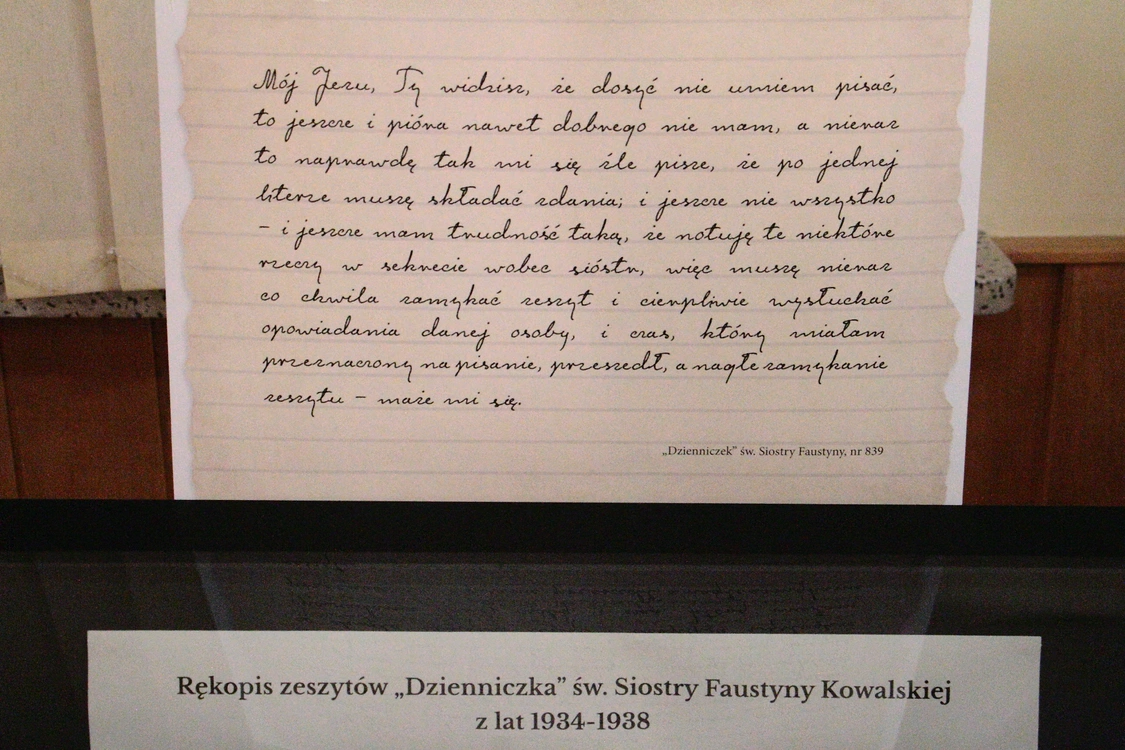 Mój Jezu, Ty widzisz, że dosyć nie umiem pisać,
to jeszcze i pióra nawet dobrego nie mam, a nieraz
to naprawdę tak mi się źle pisze, że po jednej
literze muszę składać zdania; i jeszcze nie wszystko
– i jeszcze mam trudność taką, że notuję te niektóre
rzeczy w sekrecie wobec sióstr, więc muszę nieraz
co chwila zamykać zeszyt i cierpliwie wysłuchać
opowiadania danej osoby, i czas, który miałam
przeznaczony na pisanie, przeszedł, a nagłe zamykanie
zeszytu – maże mi się.
„Dzienniczek” św. Siostry Faustyny, nr 839
Rękopis zeszytów „Dzienniczka” św. Siostry Faustyny Kowalskiej
z lat 1934-1938